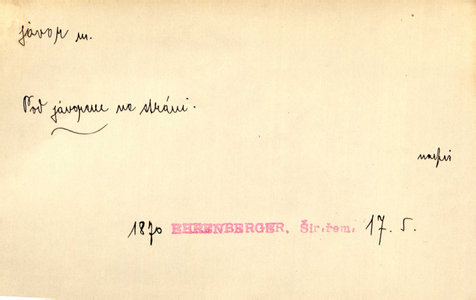 jávor m.
Pod jávorem na stráni.
nadpis
1870 EHRENBERGER, Šir.řem. 17. 5.